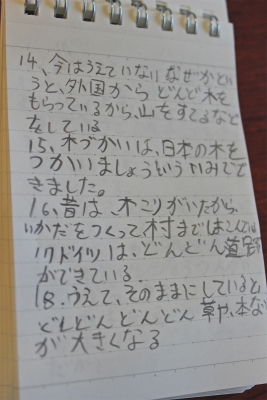 14、今はうえていないなぜかとい
うと、外国からどんど木を
もらっているから、山をすてるなど
をしている
15、木づかいは、日本の木を
つかいましょうといういみでで
きました。
16、昔は、木こりがいたから、
いかだをつくって村まではこんでい
17ドイツは、どんどん道
ができている。
18、うえて、そのままにしていると
どんどんどんどん草や、木な
が大きくなる